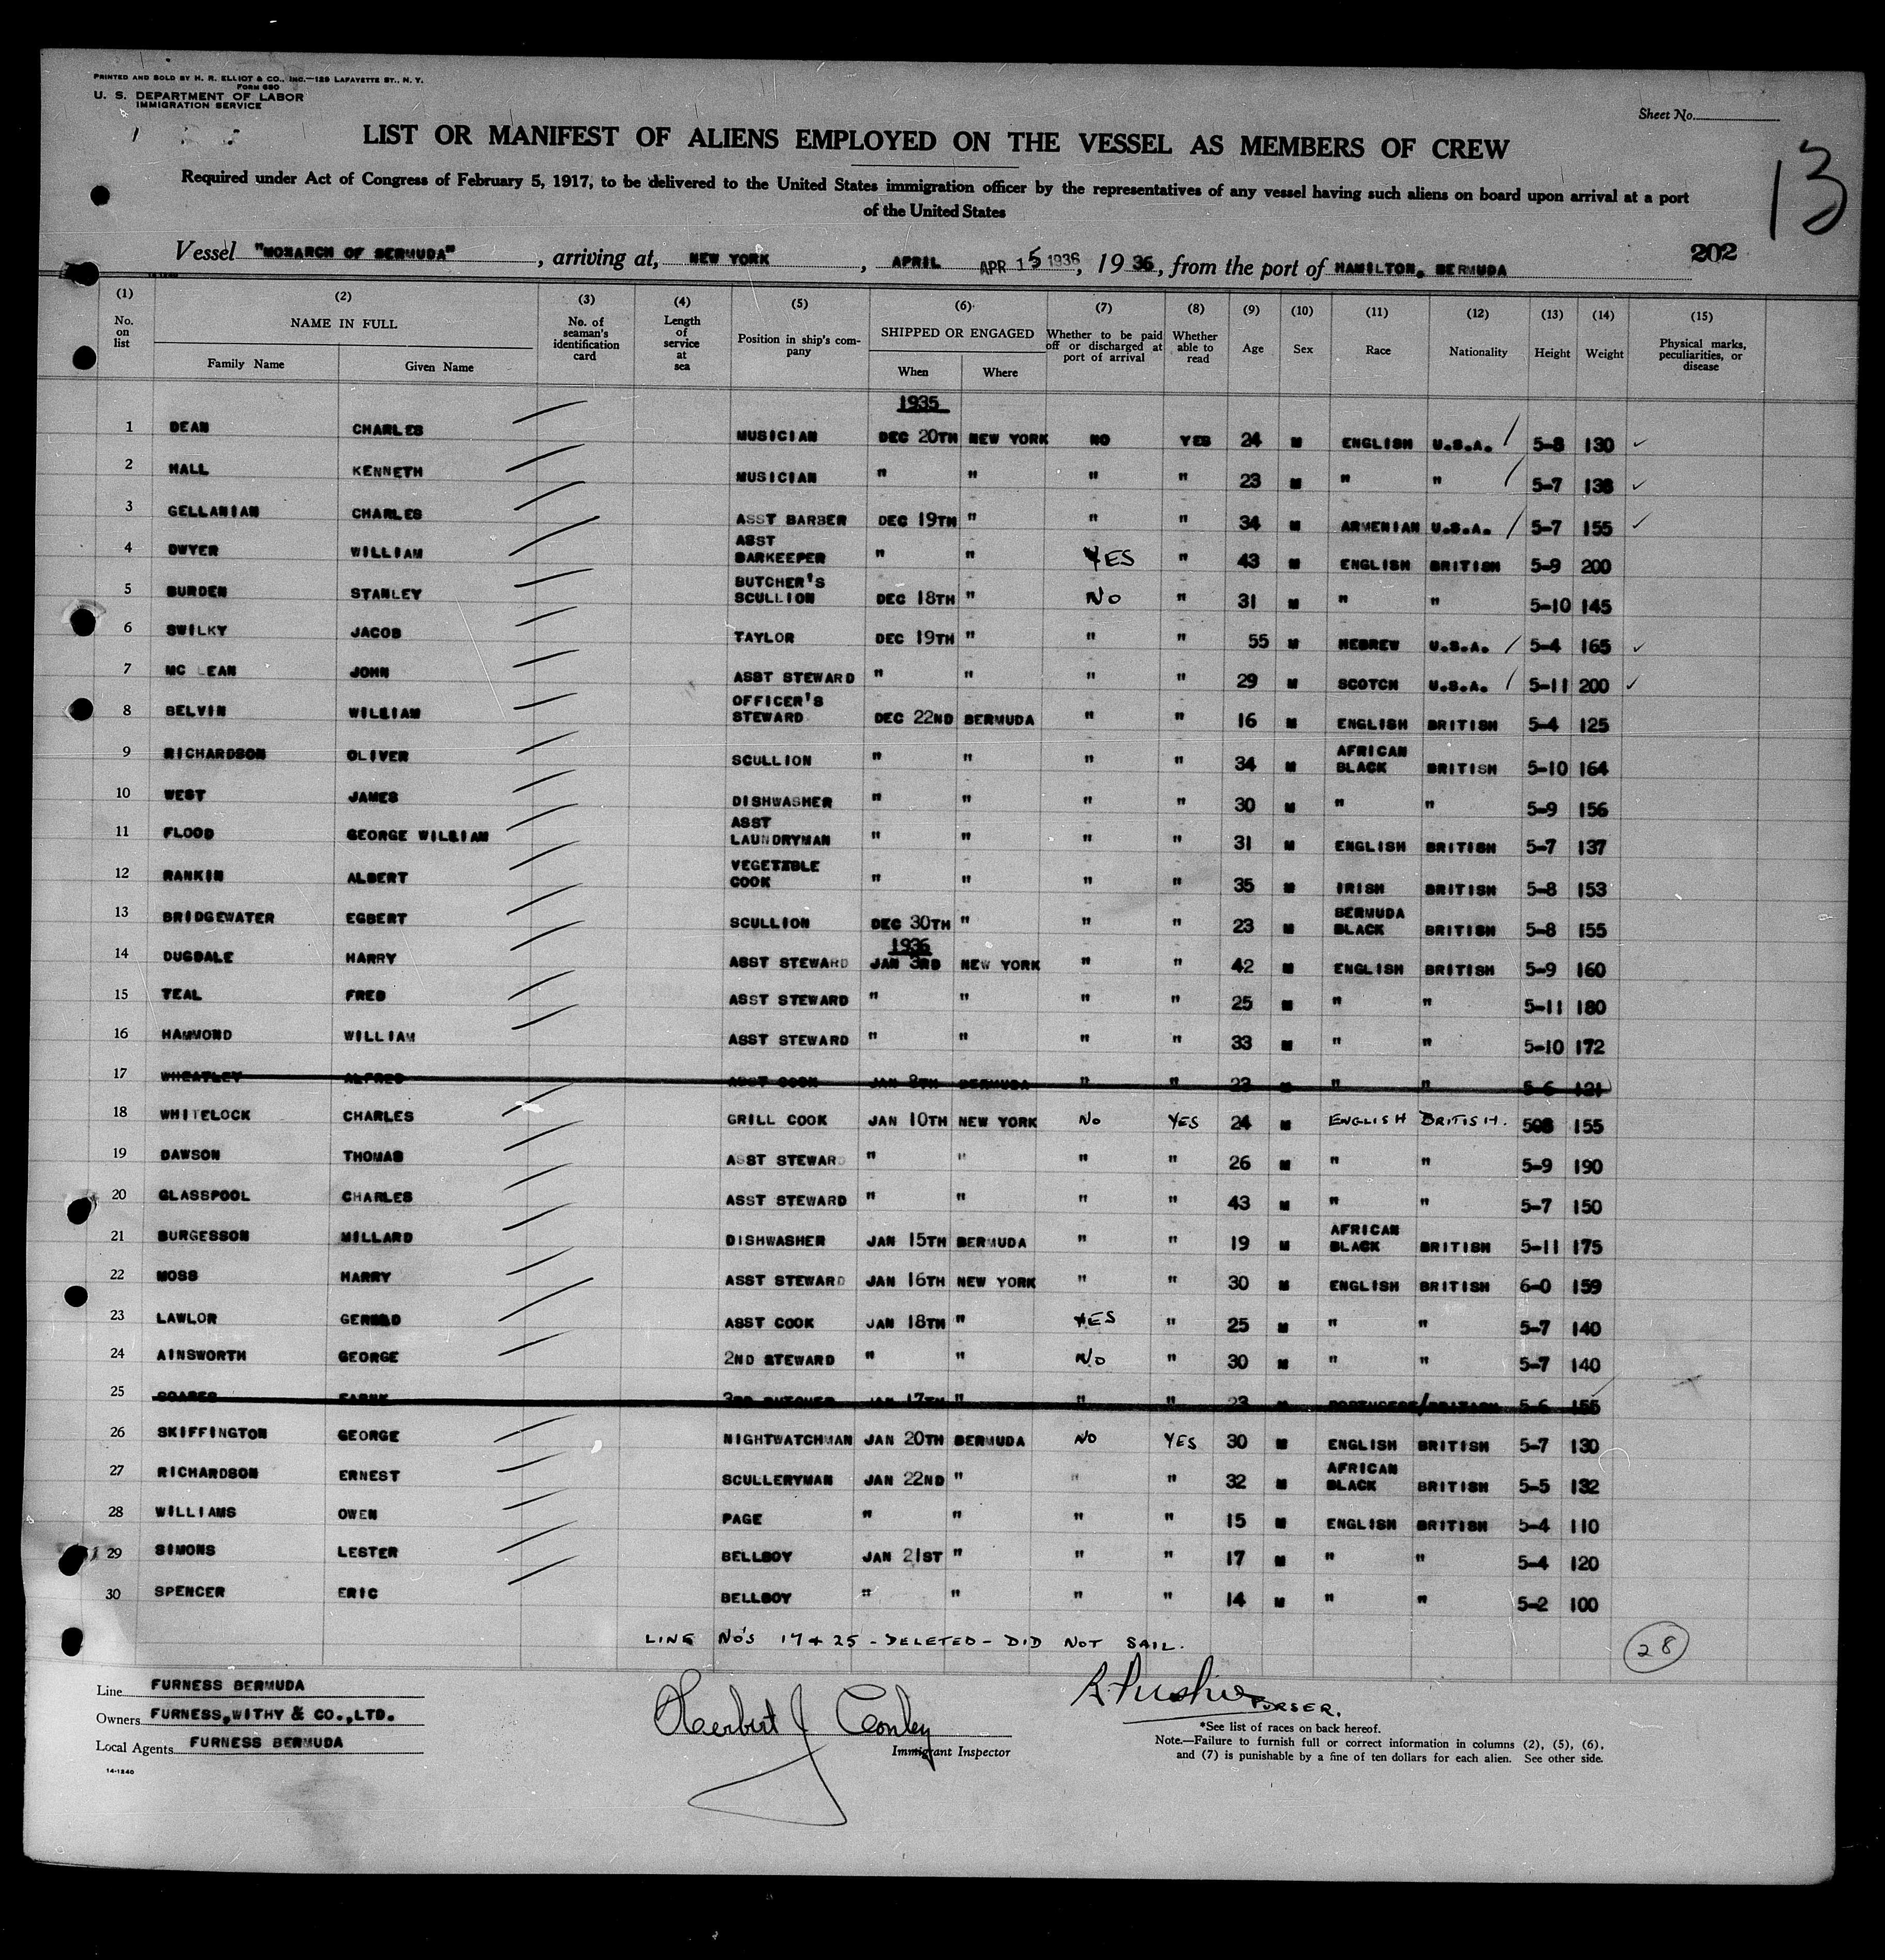 PRINTED AND SOLD BY H. R. ELLIOT & CO., INC.—129 LAFAYETTE ST., N. Y.
FORM 680
U. S. DEPARTMENT OF LABOR
IMMIGRATION SERVICE
Sheet No.
LIST OR MANIFEST OF ALIENS EMPLOYED ON THE VESSEL AS MEMBERS OF CREW
13
Required under Act of Congress of February 5, 1917, to be delivered to the United States immigration officer by the representatives of any vessel having such aliens on board upon arrival at a port
of the United States
202
Vessel "MONARCH OF BERMUDA", arriving at, NEW YORK, APRIL APR 15 1936, 1936, from the port of HAMILTON, BERMUDA
(1) (2) (3) (4) (5) (6) (7) (8) (9) (10) (11) (12) (13) (14) (15)
No. on list NAME IN FULL Family Name Given Name No. of seaman's identification card Length of service at sea Position in ship's company SHIPPED OR ENGAGED When Where Whether to be paid off or discharged at port of arrival Whether able to read Age Sex Race Nationality Height Weight Physical marks, peculiarities, or disease
1935
1 DEAN CHARLES MUSICIAN DEC 20TH NEW YORK NO YES 24 M ENGLISH U.S.A. 5-8 130
2 HALL KENNETH MUSICIAN " " " " 23 M " " 5-7 138
3 GELLANIAN CHARLES ASST BARBER DEC 19TH " " " 34 M ARMENIAN U.S.A. 5-7 155
4 DWYER WILLIAM ASST BARKEEPER " " YES " 43 M ENGLISH BRITISH 5-9 200
5 BURDEN STANLEY BUTCHER'S SCULLION DEC 18TH " NO " 31 M " " 5-10 145
6 SWILKY JACOB TAYLOR DEC 19TH " " " 55 M HEBREW U.S.A. 5-4 165
7 MC LEAN JOHN ASST STEWARD " " " " 29 M SCOTCH U.S.A. 5-11 200
8 BELVIN WILLIAM OFFICER'S STEWARD DEC 22ND BERMUDA " " 16 M ENGLISH BRITISH 5-4 125
9 RICHARDSON OLIVER SCULLION " " " " 34 M AFRICAN BLACK BRITISH 5-10 164
10 WEST JAMES DISHWASHER " " " " 30 M " " 5-9 156
11 FLOOD GEORGE WILLIAM ASST LAUNDRYMAN " " " " 31 M ENGLISH BRITISH 5-7 137
12 RANKIN ALBERT VEGETABLE COOK " " " " 35 M IRISH BRITISH 5-8 153
13 BRIDGEWATER EGBERT SCULLION DEC 30TH " " " 23 M BERMUDA BLACK BRITISH 5-8 155
1936
14 DUGDALE HARRY ASST STEWARD JAN 3RD NEW YORK " " 42 M ENGLISH BRITISH 5-9 160
15 TEAL FRED ASST STEWARD " " " " 25 M " " 5-11 180
16 HAMMOND WILLIAM ASST STEWARD " " " " 33 M " " 5-10 172
17 WHEATLEY ALFRED ASST COOK JAN 8TH BERMUDA " " 23 M " " 5-6 121
18 WHITELOCK CHARLES GRILL COOK JAN 10TH NEW YORK NO YES 24 M ENGLISH BRITISH. 508 155
19 DAWSON THOMAS ASST STEWARD " " " " 26 M " " 5-9 190
20 GLASSPOOL CHARLES ASST STEWARD " " " " 43 M " " 5-7 150
21 BURGESSON MILLARD DISHWASHER JAN 15TH BERMUDA " " 19 M AFRICAN BLACK BRITISH 5-11 175
22 MOSS HARRY ASST STEWARD JAN 16TH NEW YORK " " 30 M ENGLISH BRITISH 6-0 159
23 LAWLOR ASST COOK JAN 18TH " YES " 25 M " " 5-7 140
24 AINSWORTH GEORGE 2ND STEWARD " " NO " 30 M " " 5-7 140
25 SOARES 3RD BUTCHER JAN 17TH " " " 23 M PORTUGESE/BRITISH 5-6 155
26 SKIFFINGTON GEORGE NIGHTWATCHMAN JAN 20TH BERMUDA NO YES 30 M ENGLISH BRITISH 5-7 130
27 RICHARDSON ERNEST SCULLERYMAN JAN 22ND " " " 32 M AFRICAN BLACK BRITISH 5-5 132
28 WILLIAMS OWEN PAGE " " " " 15 M ENGLISH BRITISH 5-4 110
29 SIMONS LESTER BELLBOY JAN 21ST " " " 17 M " " 5-4 120
30 SPENCER ERIC BELLBOY " " " " 14 M " " 5-2 100
LINE NO'S 17 & 25 - DELETED - DID NOT SAIL.
28
Line FURNESS BERMUDA
Owners FURNESS, WITHY & CO., LTD.
Local Agents FURNESS BERMUDA
14-1240
Herbert J Conley
Immigrant Inspector
PURSER.
*See list of races on back hereof.
Note.—Failure to furnish full or correct information in columns (2), (5), (6),
and (7) is punishable by a fine of ten dollars for each alien. See other side.